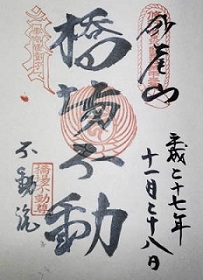 砂尾山
橋場不動
不動院
平成二十七年
十一月二十八日
橋場不動尊